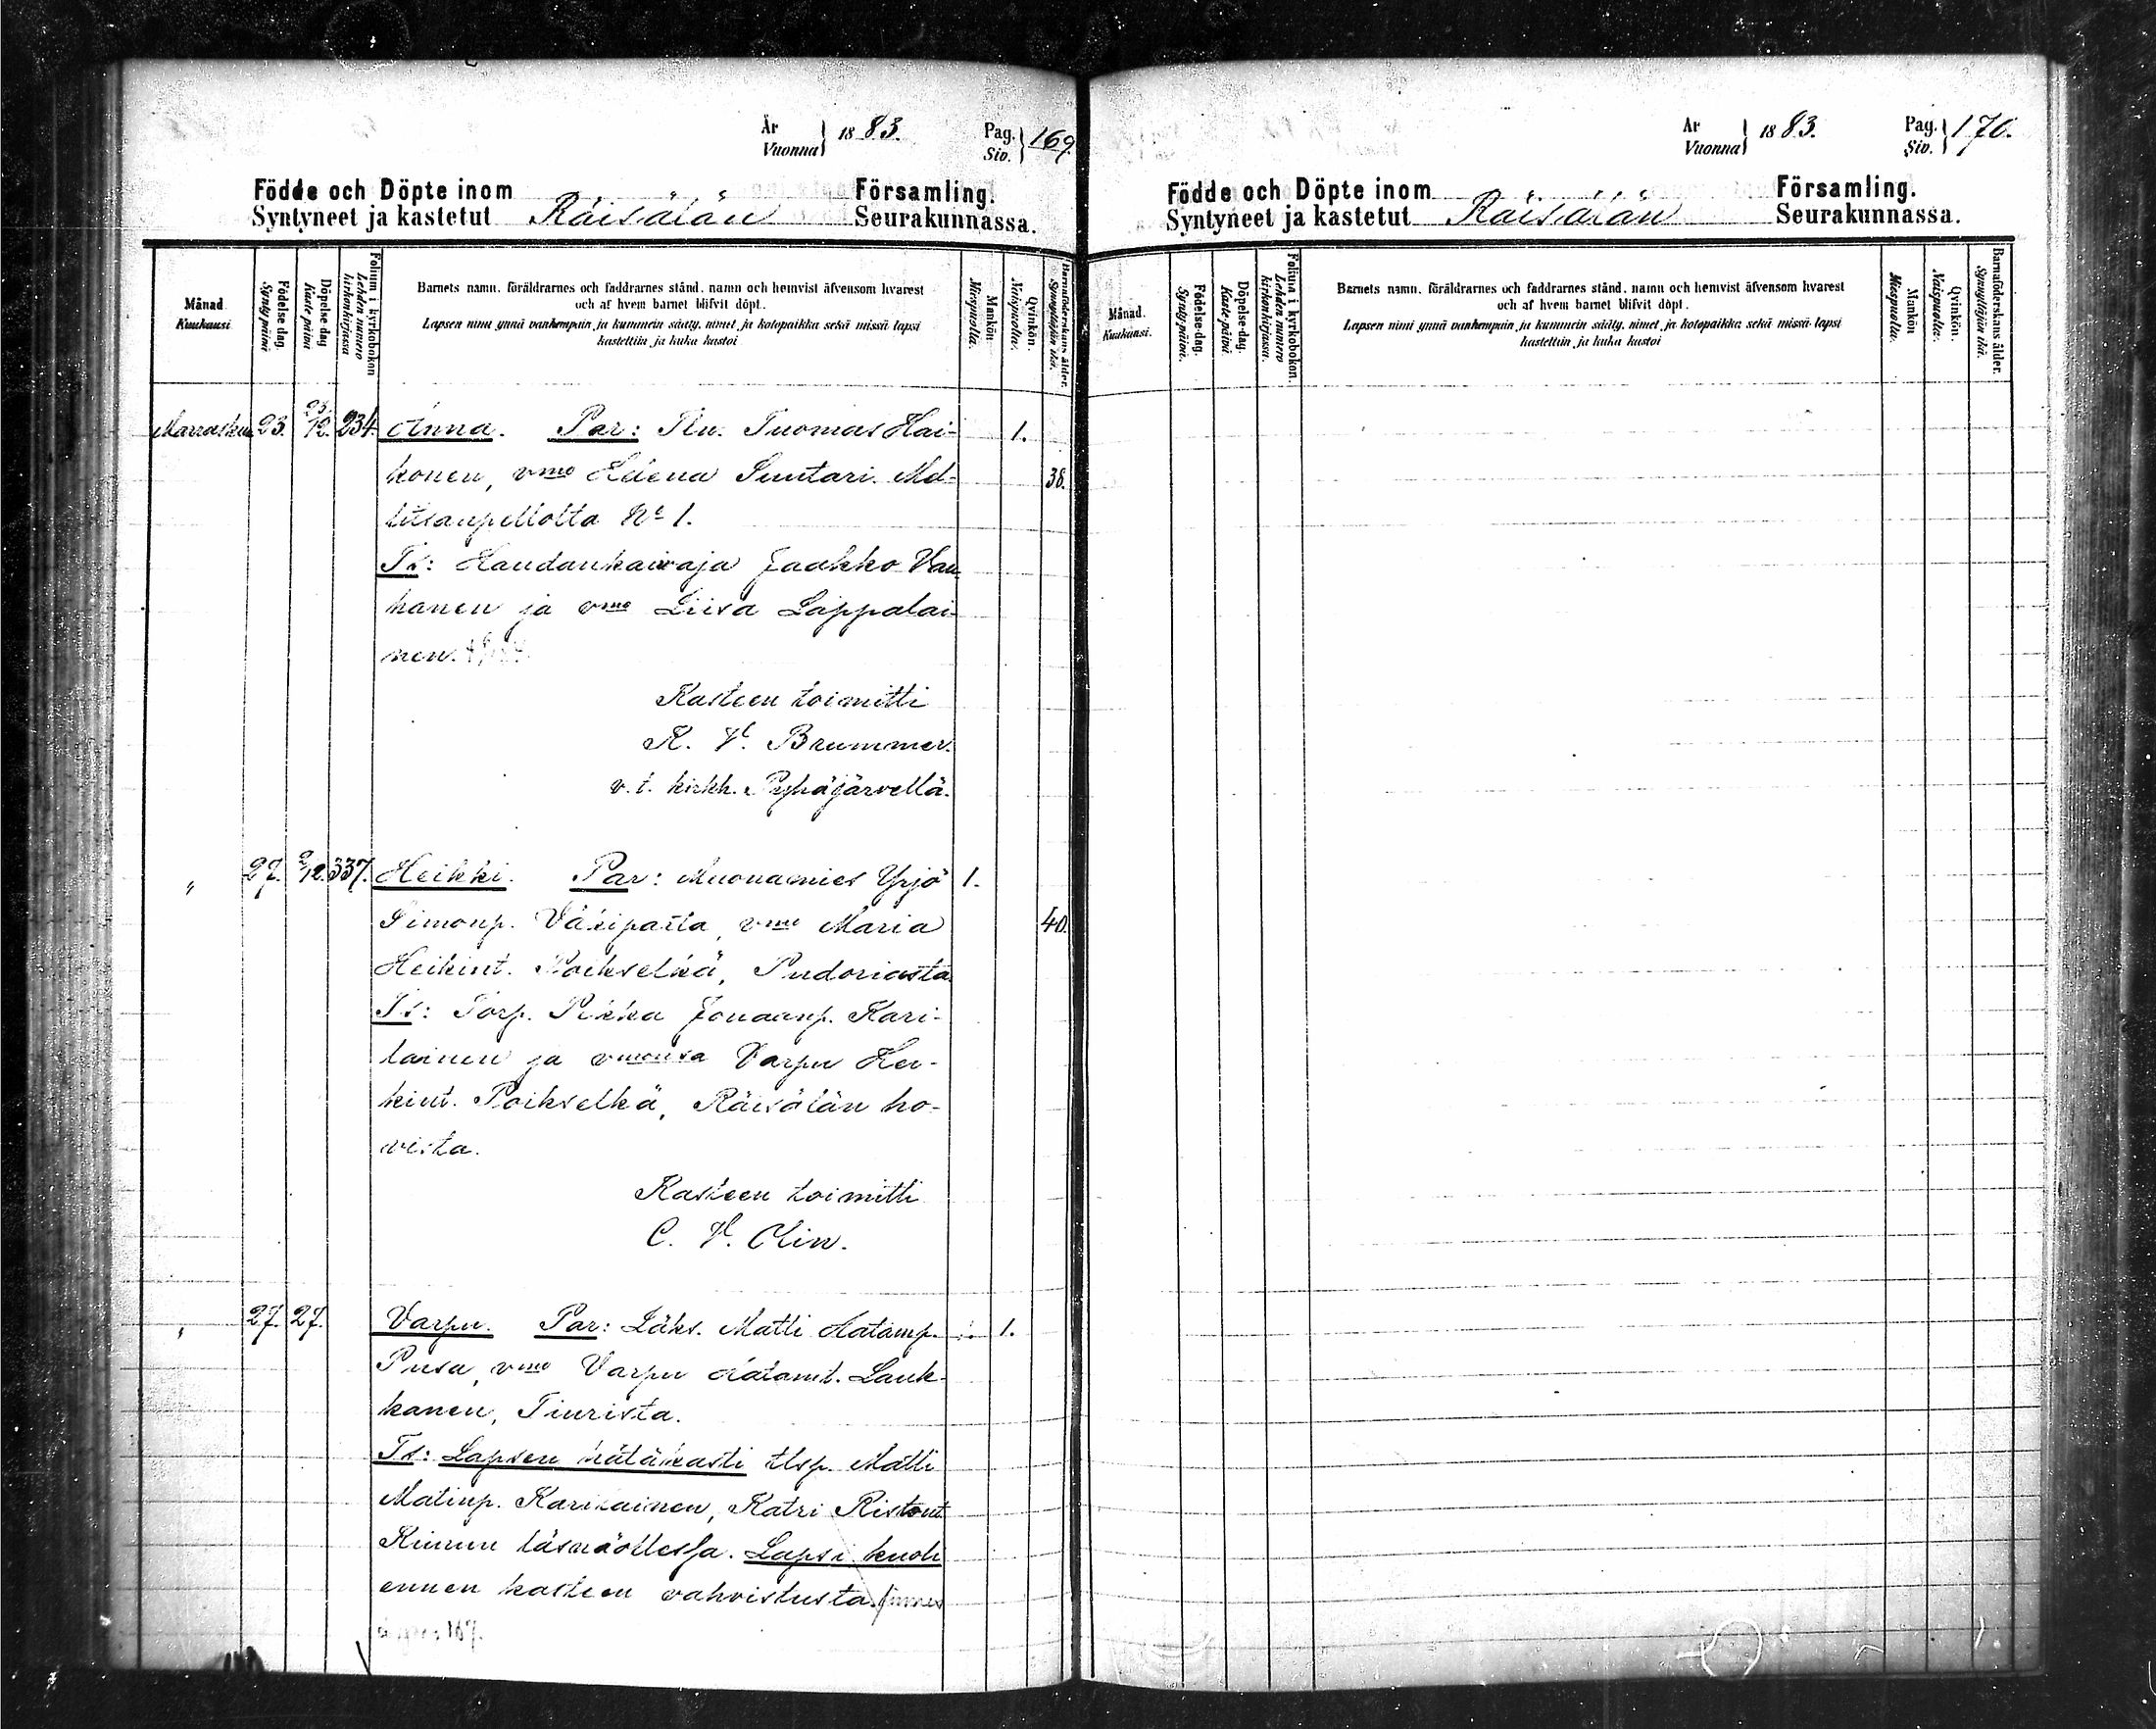 År
Vuonna } 18 83.
Pag.
Siv. } 169.
Födde och Döpte inom
Syntyneet ja kastetut Räisälän
Församling.
Seurakunnassa.
Månad
Kuukausi
Födelse dag.
Synty päivä
Döpelse dag
Kaste päivä
Folium i kyrkoboken
Lehden numero kirkonkirjassa
Barnets namn, föräldrarnes och faddrarnes stånd, namn och hemvist äfvensom hvarest
och af hvem barnet blifvit döpt.
Lapsen nimi ynnä vanhempain ja kummein sääty, nimet, ja kotopaikka sekä missä lapsi
kastettiin ja kuka kastoi
Mankön
Miespuolia.
Qvinkön.
Naispuolia.
Barnaföderskans ålder.
Synnyttäjän ikä.
Marrasku 23. 23/12. 234. Anna. Par: Tln. Tuomas Hai- 1.
konen, vmo Helena Suntari. Md- 38.
litsanpellolta No 1.
Ts: Haudankaivaja Jaakko Van
hanen ja vmo Liisa Lappalai-
nen.
Kasteen toimitti
K. V. Brummer.
v. t. kirkh. Pyhäjärvellä.
" 27. 2/12. 337. Heikki. Par: Muonamies Yrjö 1.
Simonp. Väkiparta, vmo Maria 40.
Heikint. Poikselkä, Pudoriasta
Ts: Torp. Pekka Jonaanp. Kari-
lainen ja vmonsa Varpu Hei-
kint. Poikselkä, Räisälän ho-
vista.
Kasteen toimitti
C. V. Olin.
" 27. 27. Varpu. Par: Läks. Matti Aatamp. 1.
Pusa, vmo Varpu Aatamt. Lauk-
kanen, Tiurista.
Ts: Lapsen hätäkasti tlsp. Matti
Matinp. Karikainen, Katri Ristont.
Kinnun läsnäollessa. Lapsi kuoli
ennen kasteen vahvistusta.
År
Vuonna } 18 83.
Pag.
Siv. } 170.
Födde och Döpte inom
Syntyneet ja kastetut Räisälän
Församling.
Seurakunnassa.
Månad.
Kuukausi.
Födelse-dag.
Synty päivä.
Döpelse-dag.
Kaste-päivä
Folium i kyrkoboken.
Lehden numero kirkonkirjassa.
Barnets namn, föräldrarnes och faddrarnes stånd, namn och hemvist äfvensom hvarest
och af hvem barnet blifvit döpt.
Lapsen nimi ynnä vanhempain ja kummein sääty, nimet, ja kotopaikka sekä missä lapsi
kastettiin ja kuka kastoi
Mankön
Miespuolia.
Qvinkön.
Naispuolia.
Barnaföderskans ålder.
Synnyttäjän ikä.